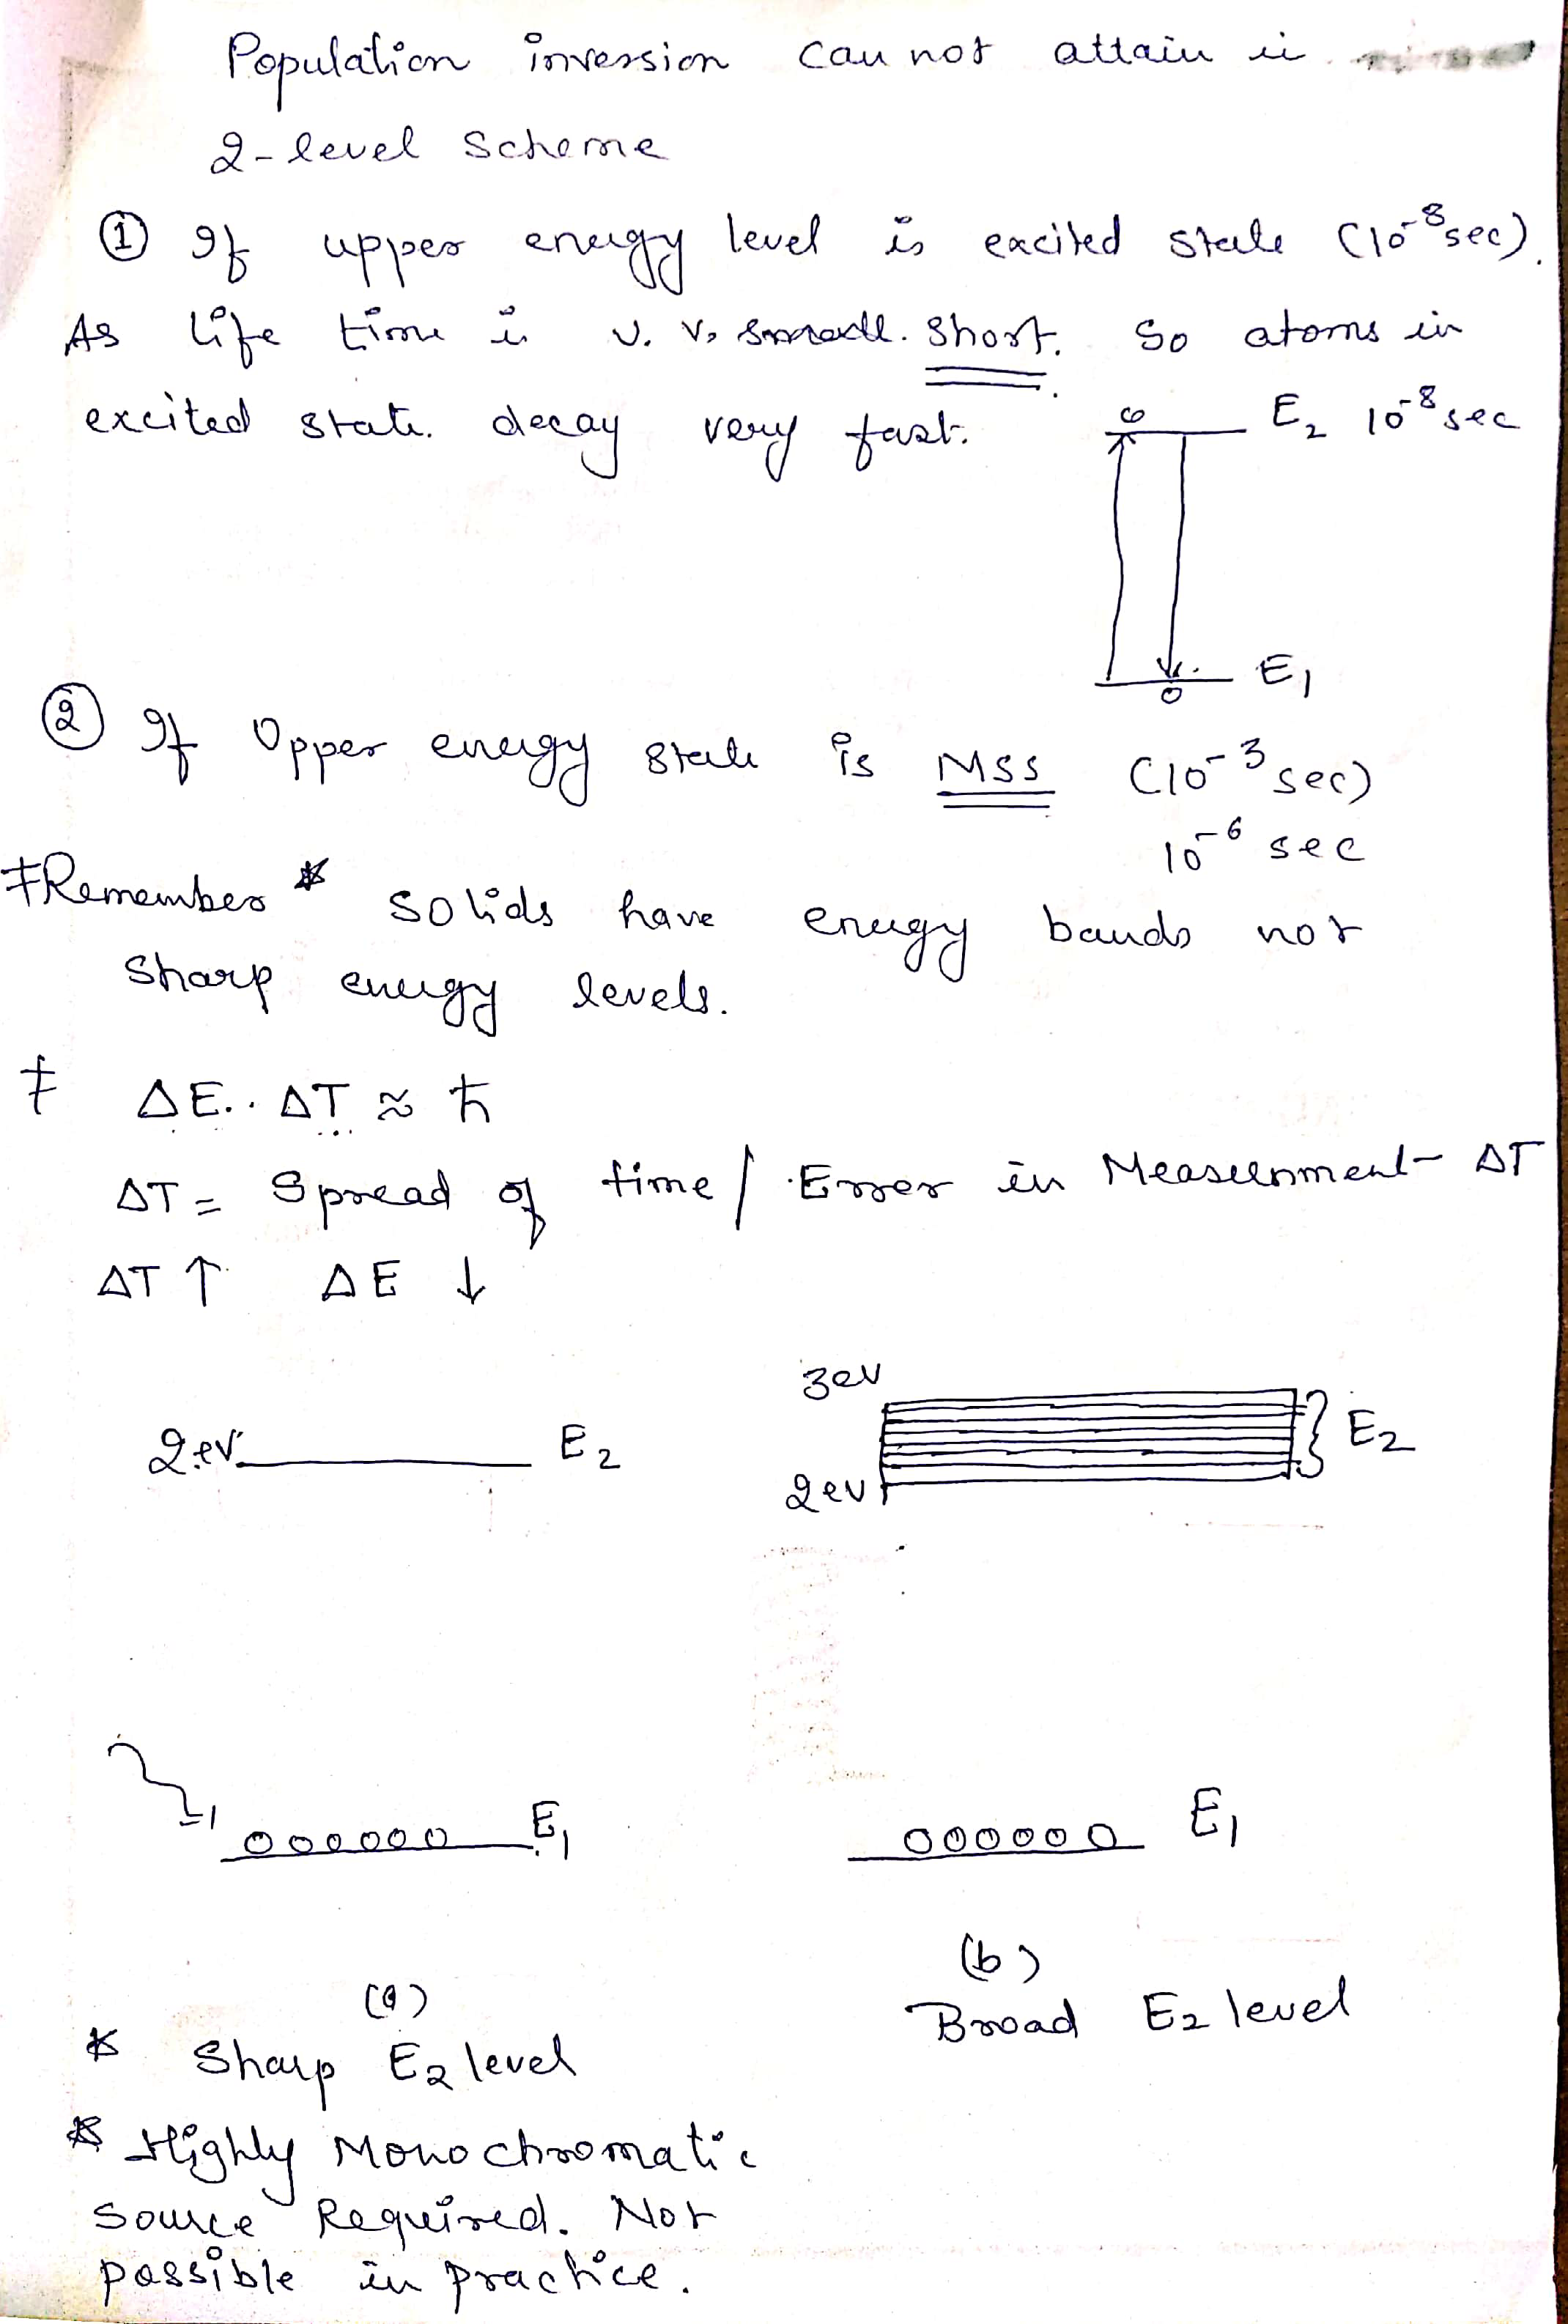 Population inversion can not attain in
2-level Scheme
① If upper energy level is excited state (10⁻⁸sec).
As life time is v. v. small. short. So atoms in
excited state. decay very fast.
E₂ 10⁻⁸sec
E₁
② If Upper energy state is MSS (10⁻³sec)
10⁻⁶ sec
≠Remember * Solids have energy bands not
sharp energy levels.
≠ ΔE.. ΔT ≈ ħ
ΔT = Spread of time / Error in Measurnment ΔT
ΔT ↑ ΔE ↓
2ev E₂
3ev
2ev E₂
E₁
E₁
(a)
(b)
* Sharp E₂ level
Broad E₂ level
* Highly Monochromatic
Source Required. Not
possible in practice.